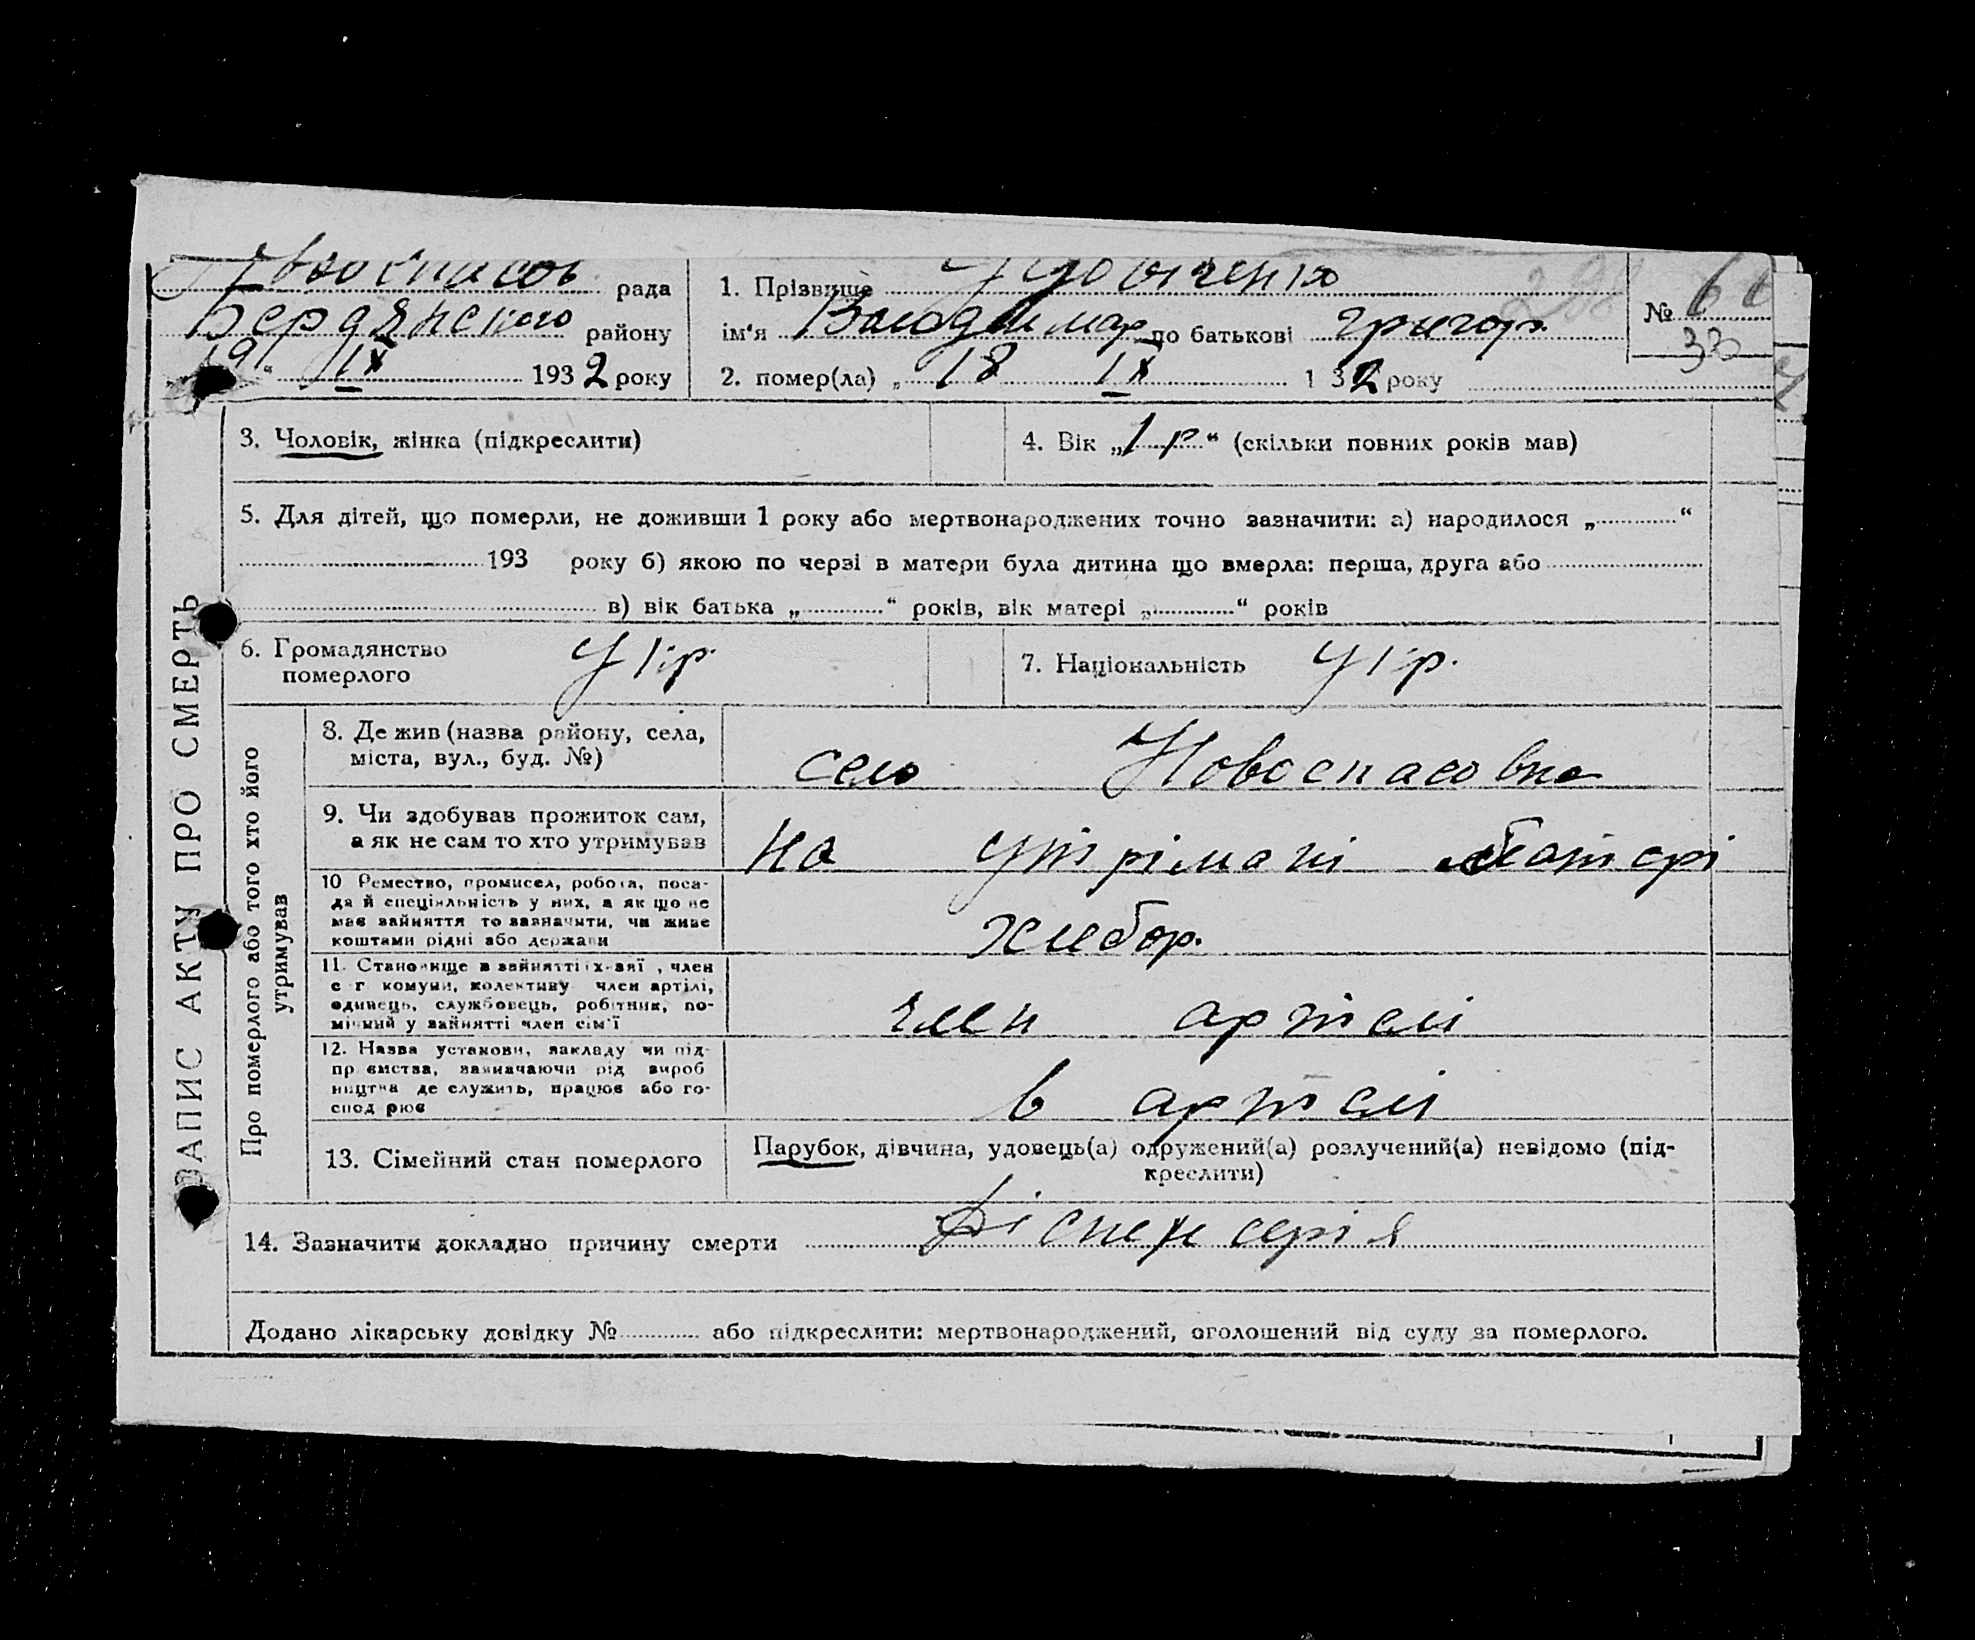 Новоспасов рада
Бердянського району
19 " IX 1932 року
1. Прізвище
ім'я Володимир по батькові Григор.
2. помер(ла) „ 18 IX 1 32 року
№
33
3. Чоловік, жінка (підкреслити)
4. Вік „ 1 р “ (скільки повних років мав)
5. Для дітей, що померли, не доживши 1 року або мертвонароджених точно зазначити: а) народилося „ “
193 року б) якою по черзі в матери була дитина що вмерла: перша, друга або
в) вік батька „ “ років, вік матері „ “ років
6. Громадянство
померлого
Укр.
7. Національність Укр.
ЗАПИС АКТУ ПРО СМЕРТЬ
Про померлого або того хто його
утримував
8. Де жив (назва району, села,
міста, вул., буд. №)
село Новоспасовка
9. Чи здобував прожиток сам,
а як не сам то хто утримував
на утрімані матері
10 Ремество, промисел, робота, поса-
да й спеціяльність у них, а як що не
має зайняття то зазначити, чи живе
коштами рідні або держави
хлебор.
11. Становище в зайнятті , член
с г комуни, колективу член артілі,
одинець, службовець, робітник, по-
мічний у зайнятті член сім'ї
член артелі
12. Назва установи, закладу чи під-
пр ємства, зазначаючи рід вироб
ництва де служить, працює або го-
спод рює
в артелі
13. Сімейний стан померлого
Парубок, дівчина, удовець(а) одружений(а) розлучений(а) невідомо (під-
креслити)
14. Зазначити докладно причину смерти Діспенсерія
Додано лікарську довідку № або підкреслити: мертвонароджений, оголошений від суду за померлого.